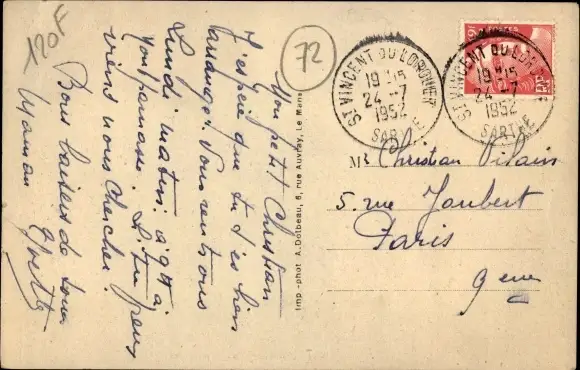 120F
72
Mon petit Christian
J'espère que tu t'es bien
arrangé. Nous rentrons
Lundi matin à 9H à
Montparnasse. Si tu peux
viens nous chercher.
Bons baisers de tous
Maman Yvette
Imp.-phot A. Dolbeau, 8, rue Auvray, Le Mans
ST VINCENT DU LOROUËR
19H15
24-7
1952
SARTHE
ST VINCENT DU LOROUËR
19H15
24-7
1952
SARTHE
Mr Christian Vilain
5 rue Joubert
Paris
9eme